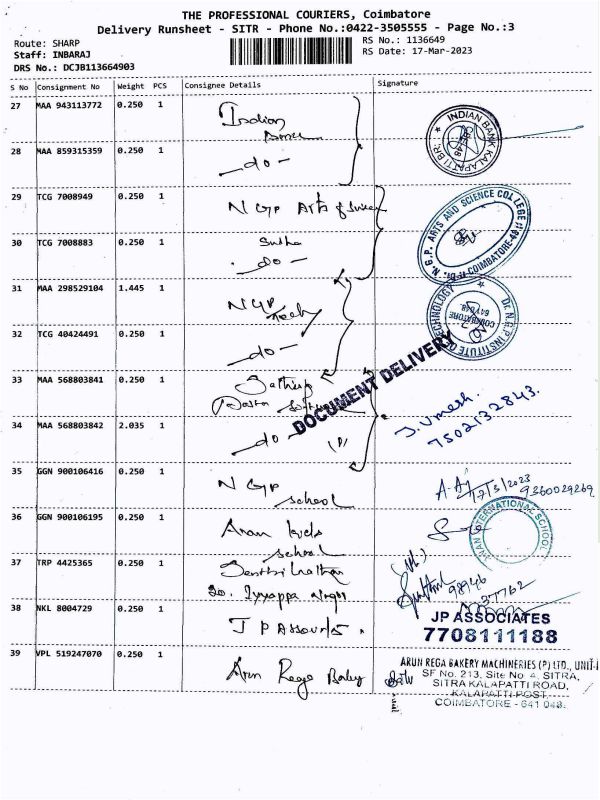 THE PROFESSIONAL COURIERS, Coimbatore
Delivery Runsheet - SITR - Phone No.:0422-3505555 - Page No.:3
Route: SHARP
RS No.: 1136649
Staff: INBARAJ
RS Date: 17-Mar-2023
DRS No.: DCJB113664903
S No Consignment No Weight PCS Consignee Details Signature
27 MAA 943113772 0.250 1 Indian
28 MAA 859315359 0.250 1 - do -
INDIAN BANK KALAPATTI BR.
29 TCG 7008949 0.250 1 NGP Arts of
30 TCG 7008883 0.250 1 Sudha
- do -
N.G.P. ARTS AND SCIENCE COLLEGE
COIMBATORE-48
31 MAA 298529104 1.445 1 NGP Tech
32 TCG 40424491 0.250 1 - do -
Dr. N.G.P INSTITUTE OF TECHNOLOGY
COIMBATORE
641 048.
DOCUMENT DELIVERY
33 MAA 568803841 0.250 1
34 MAA 568803842 2.035 1 - do - (P)
J. Umesh.
7502132843.
35 GGN 900106416 0.250 1 NGP
school
17/3/2023
9360029269
36 GGN 900106195 0.250 1 Aran kids
school
INTERNATIONAL SCHOOL
37 TRP 4425365 0.250 1 Senthil nathan
20. Iyyappa nagar
98946
38 NKL 8004729 0.250 1 JP Assounts.
JP ASSOCIATES
7708111188
39 VPL 519247070 0.250 1 Arun Rega Bakry
ARUN REGA BAKERY MACHINERIES (P) LTD., UNIT-I
SF No. 213, Site No. 4, SITRA,
SITRA KALAPATTI ROAD,
KALAPATTI POST,
COIMBATORE - 641 048.